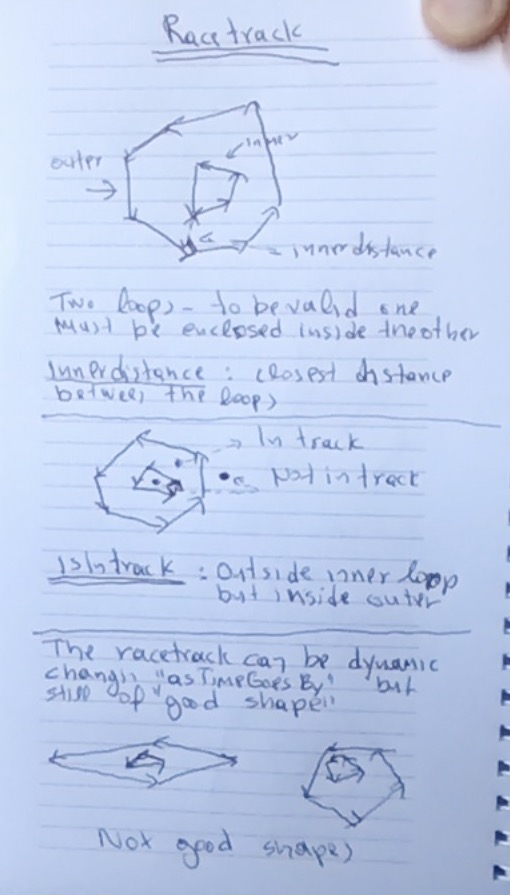 Racetrack
inner
outer
innerdistance
Two loops - to be valid one
must be enclosed inside the other
innerdistance : closest distance
between the loops
In track
Not in track
isIntrack : Outside inner loop
but inside outer
The racetrack can be dynamic
changing "asTimeGoesBy" but
still of "good shape"
Not good shapes